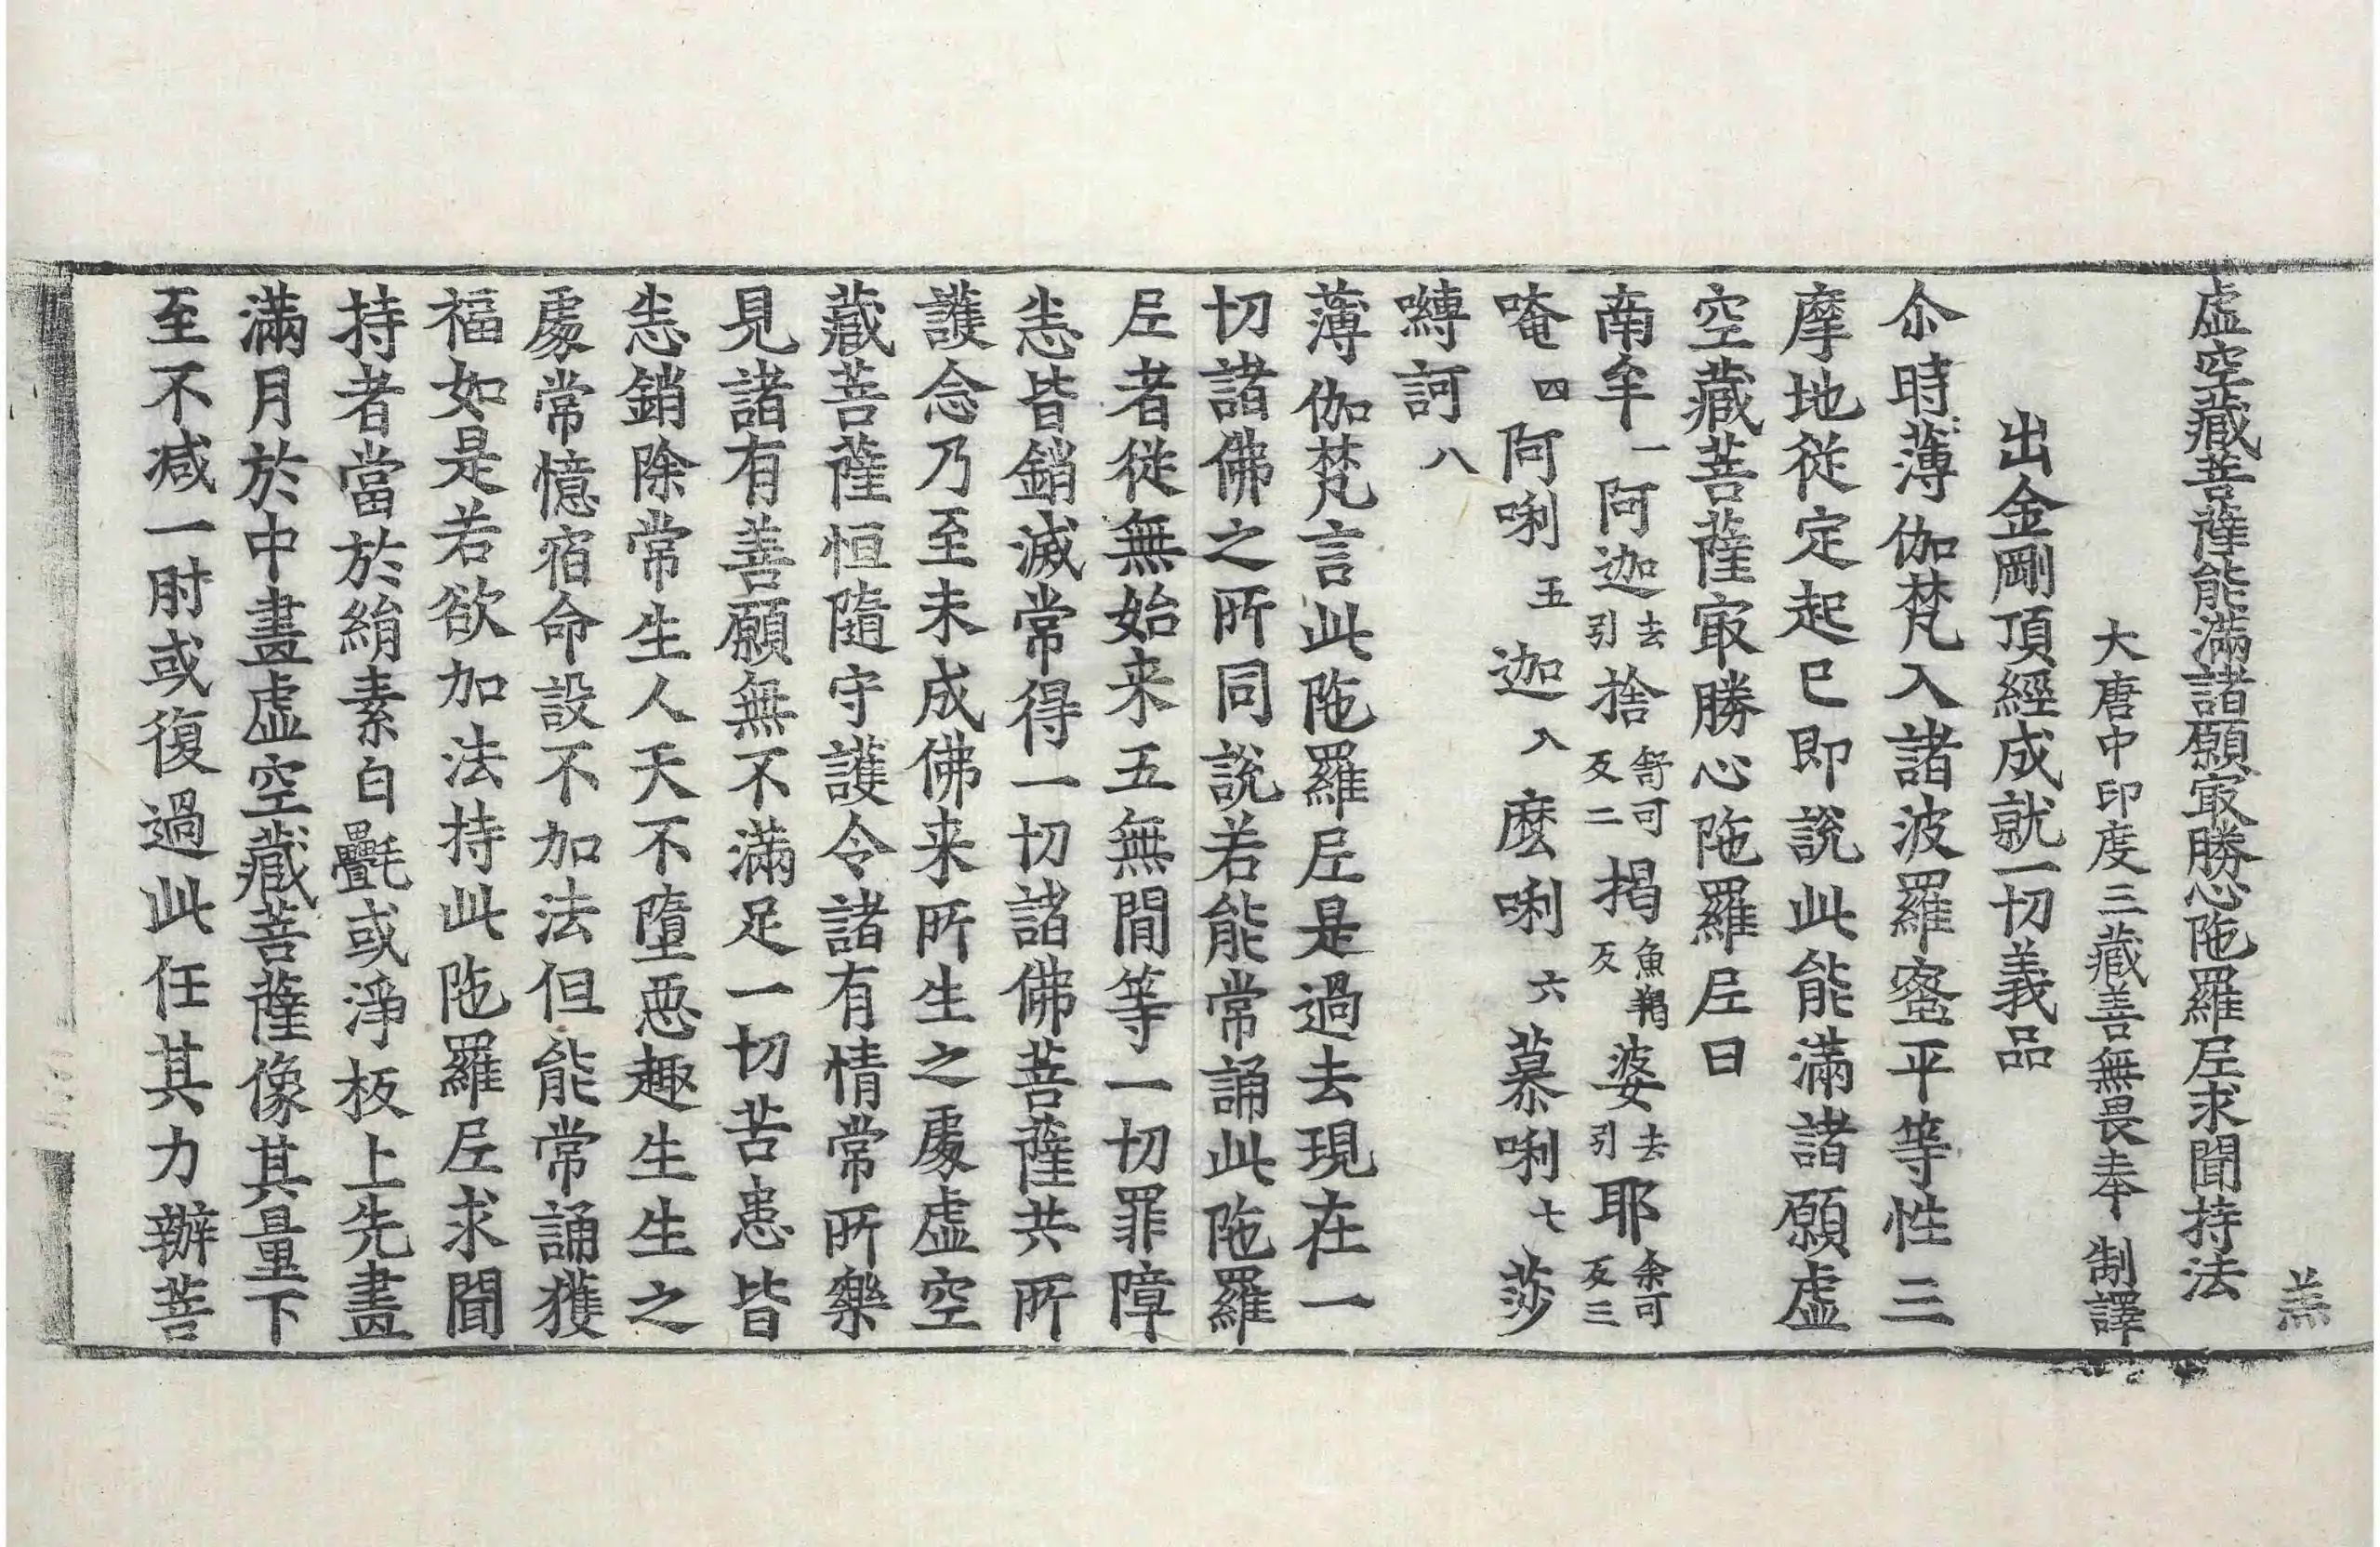 羔
虚空藏菩薩能滿諸願㝡勝心陁羅𡰱求聞持法
大唐中印度三藏善無畏奉 制譯
出金剛頂經成就一切義品
尒時薄伽梵入諸波羅蜜平等性三
摩地從定起已即說此能滿諸願虚
空藏菩薩㝡勝心陁羅𡰱曰
南牟一阿迦去引捨舒可反二揭魚羯反婆去引耶余可反三
唵四阿唎五迦入麽唎六慕唎七莎
嚩訶八
薄伽梵言此陁羅𡰱是過去現在一
切諸佛之所同說若能常誦此陁羅
𡰱者從無始来五無間等一切罪障
悉皆銷滅常得一切諸佛菩薩共所
護念乃至未成佛来所生之處虚空
藏菩薩恒隨守護令諸有情常所樂
見諸有善願無不滿足一切苦患皆
悉銷除常生人天不墮惡趣生生之
處常憶宿命設不加法但能常誦獲
福如是若欲加法持此陁羅𡰱求聞
持者當於絹素白㲲或淨板上先畫
滿月於中畫虚空藏菩薩像其量下
至不减一肘或復過此任其力辦菩